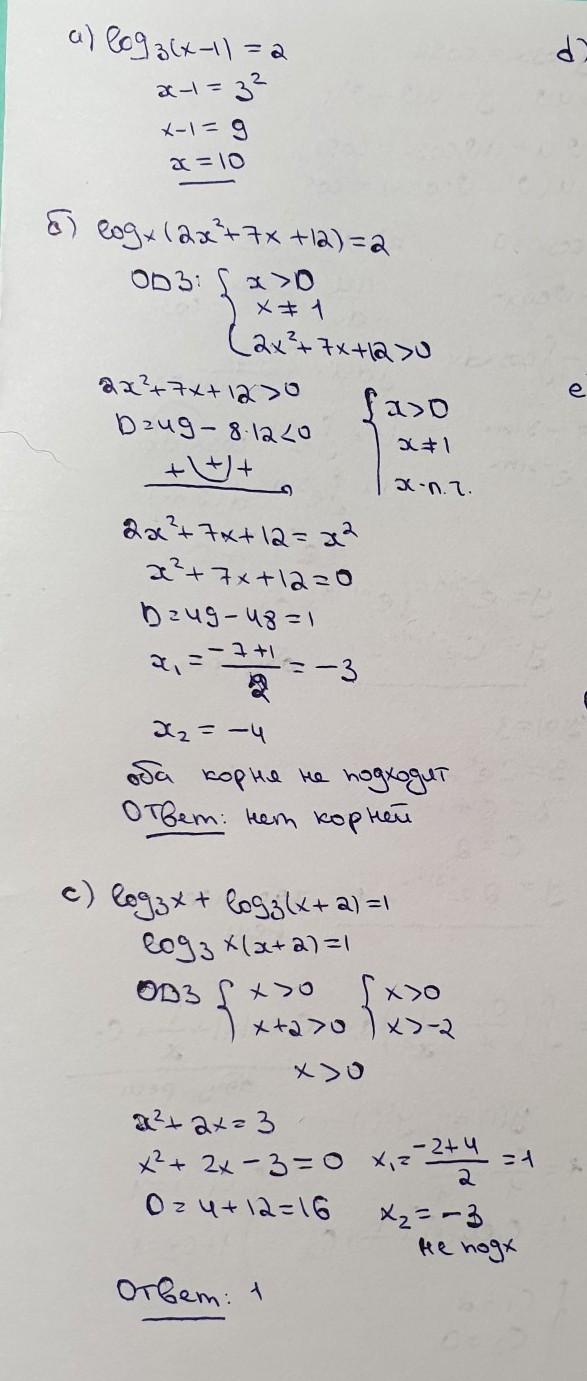 а) log₃(x-1) = 2
d)
x-1 = 3²
x-1 = 9
x = 10
б) logₓ(2x²+7x+12) = 2
ОДЗ: { x>0
x ≠ 1
2x²+7x+12>0
2x²+7x+12>0
D=49-8·12<0
+ + +
{ x>0
x≠1
x-л.ч.
e
2x²+7x+12 = x²
x²+7x+12=0
D=49-48=1
x₁ = (-7+1)/2 = -3
x₂ = -4
оба корня не подходит
Ответ: нет корней
c) log₃x + log₃(x+2)=1
log₃ x(x+2)=1
ОДЗ { x>0 { x>0
x+2>0 x>-2
x>0
x²+2x=3
x²+2x-3=0 x₁=(-2+4)/2=1
D=4+12=16 x₂=-3
не подх
Ответ: 1